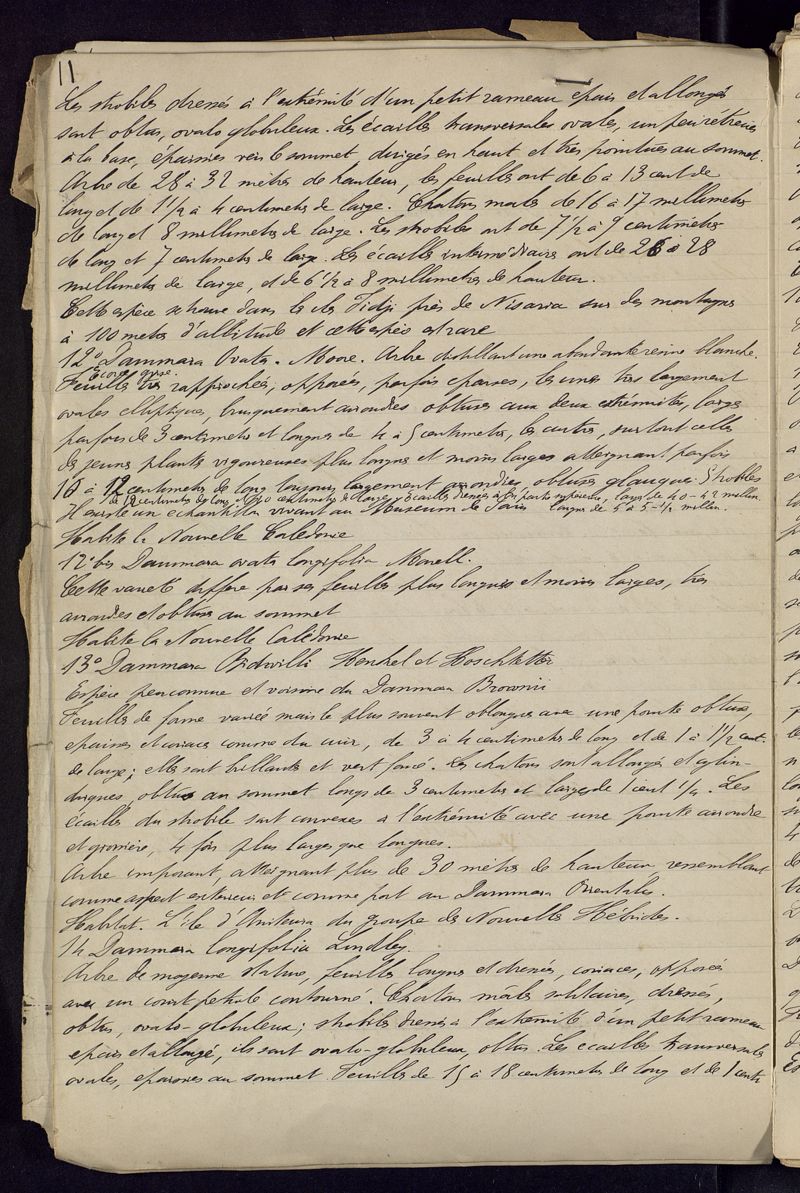 11
Les strobiles dressés à l'extrémité d'un petit rameau epais et allongé
sont obtus, ovato globuleux. Les écailles transversales ovales, un peu rétrécies
à la base, épaissies vers le sommet dirigés en haut et très pointues au sommet.
Arbre de 28 à 32 mètres de hauteur, les feuilles ont de 6 à 13 cent de
long et de 1 1/2 à 4 centimetres de large. Chatons males de 16 à 17 millimetres
de long et 8 millimetres de large. Les strobiles ont de 7 1/2 à 9 centimètres
de long et 7 centimetres de large. Les écailles intermédiaires ont de 26 à 28
millimetres de large, et de 6 1/2 à 8 millimetres de hauteur.
Cette espèce se trouve dans les iles Fidji près de sur des montagnes
à 100 metres d'altitude et cette espèce est rare
12° Dammara Ovata. Moore. Arbre distillant une abondante resine blanche.
Ecorce grise.
Feuilles très rapprochées, opposées, parfois eparses, les unes très largement
ovales elliptiques, brusquement arrondies obtuses aux deux extrémités, larges
parfois de 3 centimetres et longues de 4 à 5 centimetres, les autres, surtout celles
des jeunes plantes vigoureuses plus longues et moins larges atteignant parfois
10 à 12 centimetres de long toujours largement arrondies, obtuses glauques. Strobiles
de 12 centimetres de long et 10 centimetres de large, ecailles dressées à la partie superieure, larges de 40-42 millim.
Il existe un échantillon vivant au Museum de Paris longues de 5 à 5-1/2 millim.
Habite la Nouvelle Caledonie
12° bis Dammara ovata longifolia
Cette varieté differe par ses feuilles plus longues et moins larges, très
arrondies et obtuses au sommet
Habite la Nouvelle Calédonie
13° Dammara Bidwilli Henkel et Hoschtetter
Espèce peu connue et voisine du Dammara Brownii
Feuilles de forme variée mais le plus souvent oblongues avec une pointe obtuse,
epaisses et coriaces comme du cuir, de 3 à 4 centimetres de long et de 1 à 1 1/2 cent.
de large; elles sont brillantes et vert foncé. Les chatons sont allongés et cylin-
driques, obtus au sommet longs de 3 centimetres et larges de 1 cent 1/4. Les
écailles du strobile sont convexes à l'extrémité avec une pointe arrondie
et grossière, 4 fois plus larges que longues.
Arbre imposant, atteignant plus de 30 mètres de hauteur, ressemblant
comme aspect exterieur et comme port au Dammara Orientalis.
Habitat. L'ile d' du groupe des Nouvelles Hébrides.
14 Dammara longifolia Lindley.
Arbre de moyenne stature, feuilles longues et dressées, coriaces, opposées
avec un court petiole contourné. Chatons mâles solitaires, dressés,
obtus, ovato-globuleux; strobiles dressés à l'extrémité d'un petit rameau
epais et allongé, ils sont ovato-globuleux, obtus. Les ecailles transversales
ovales, epaissies au sommet. Feuilles de 15 à 18 centimetres de long et de 1 centi